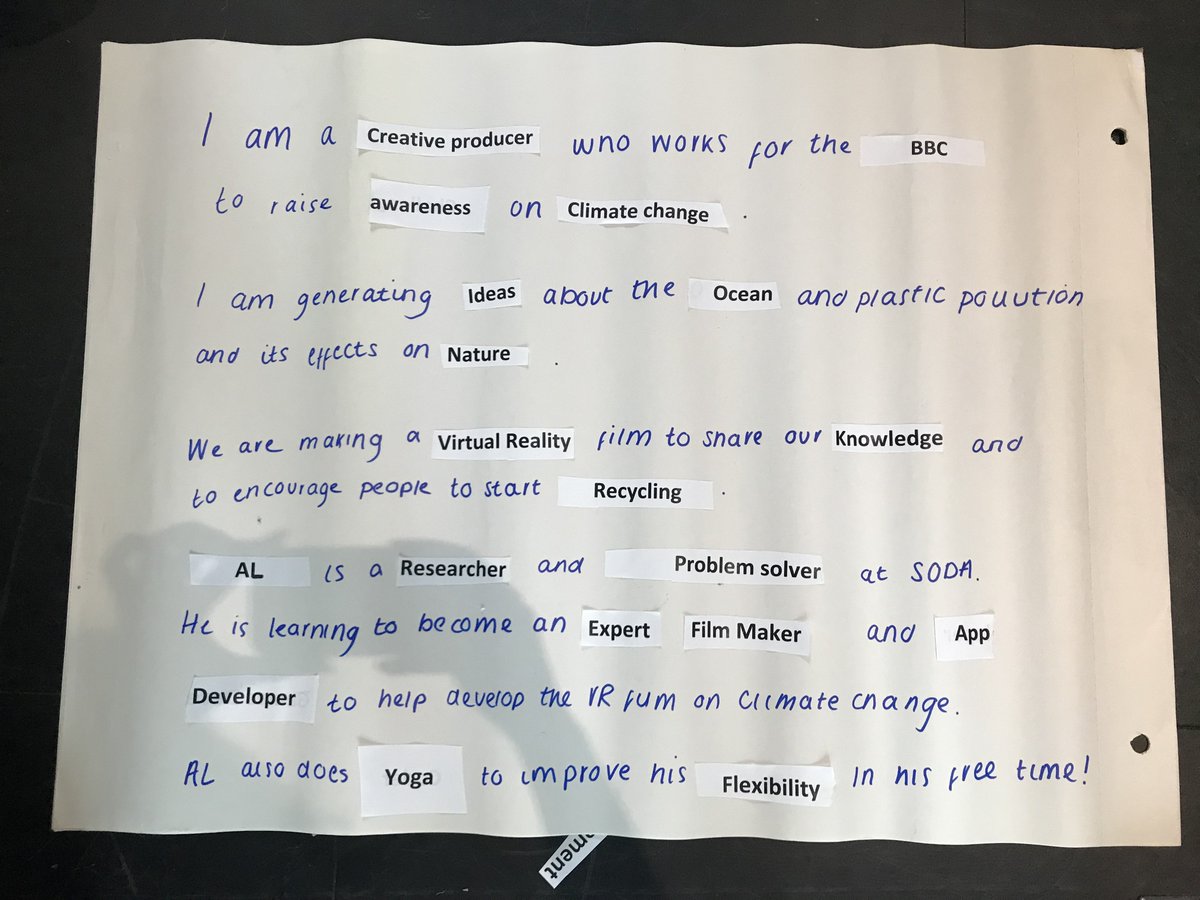 I am a Creative producer who works for the BBC
to raise awareness on Climate change .
I am generating Ideas about the Ocean and plastic pollution
and its effects on Nature .
We are making a Virtual Reality film to share our Knowledge and
to encourage people to start Recycling .
AL is a Researcher and Problem solver at SODA.
He is learning to become an Expert Film Maker and App
Developer to help develop the VR film on climate change.
AL also does Yoga to improve his Flexibility in his free time!